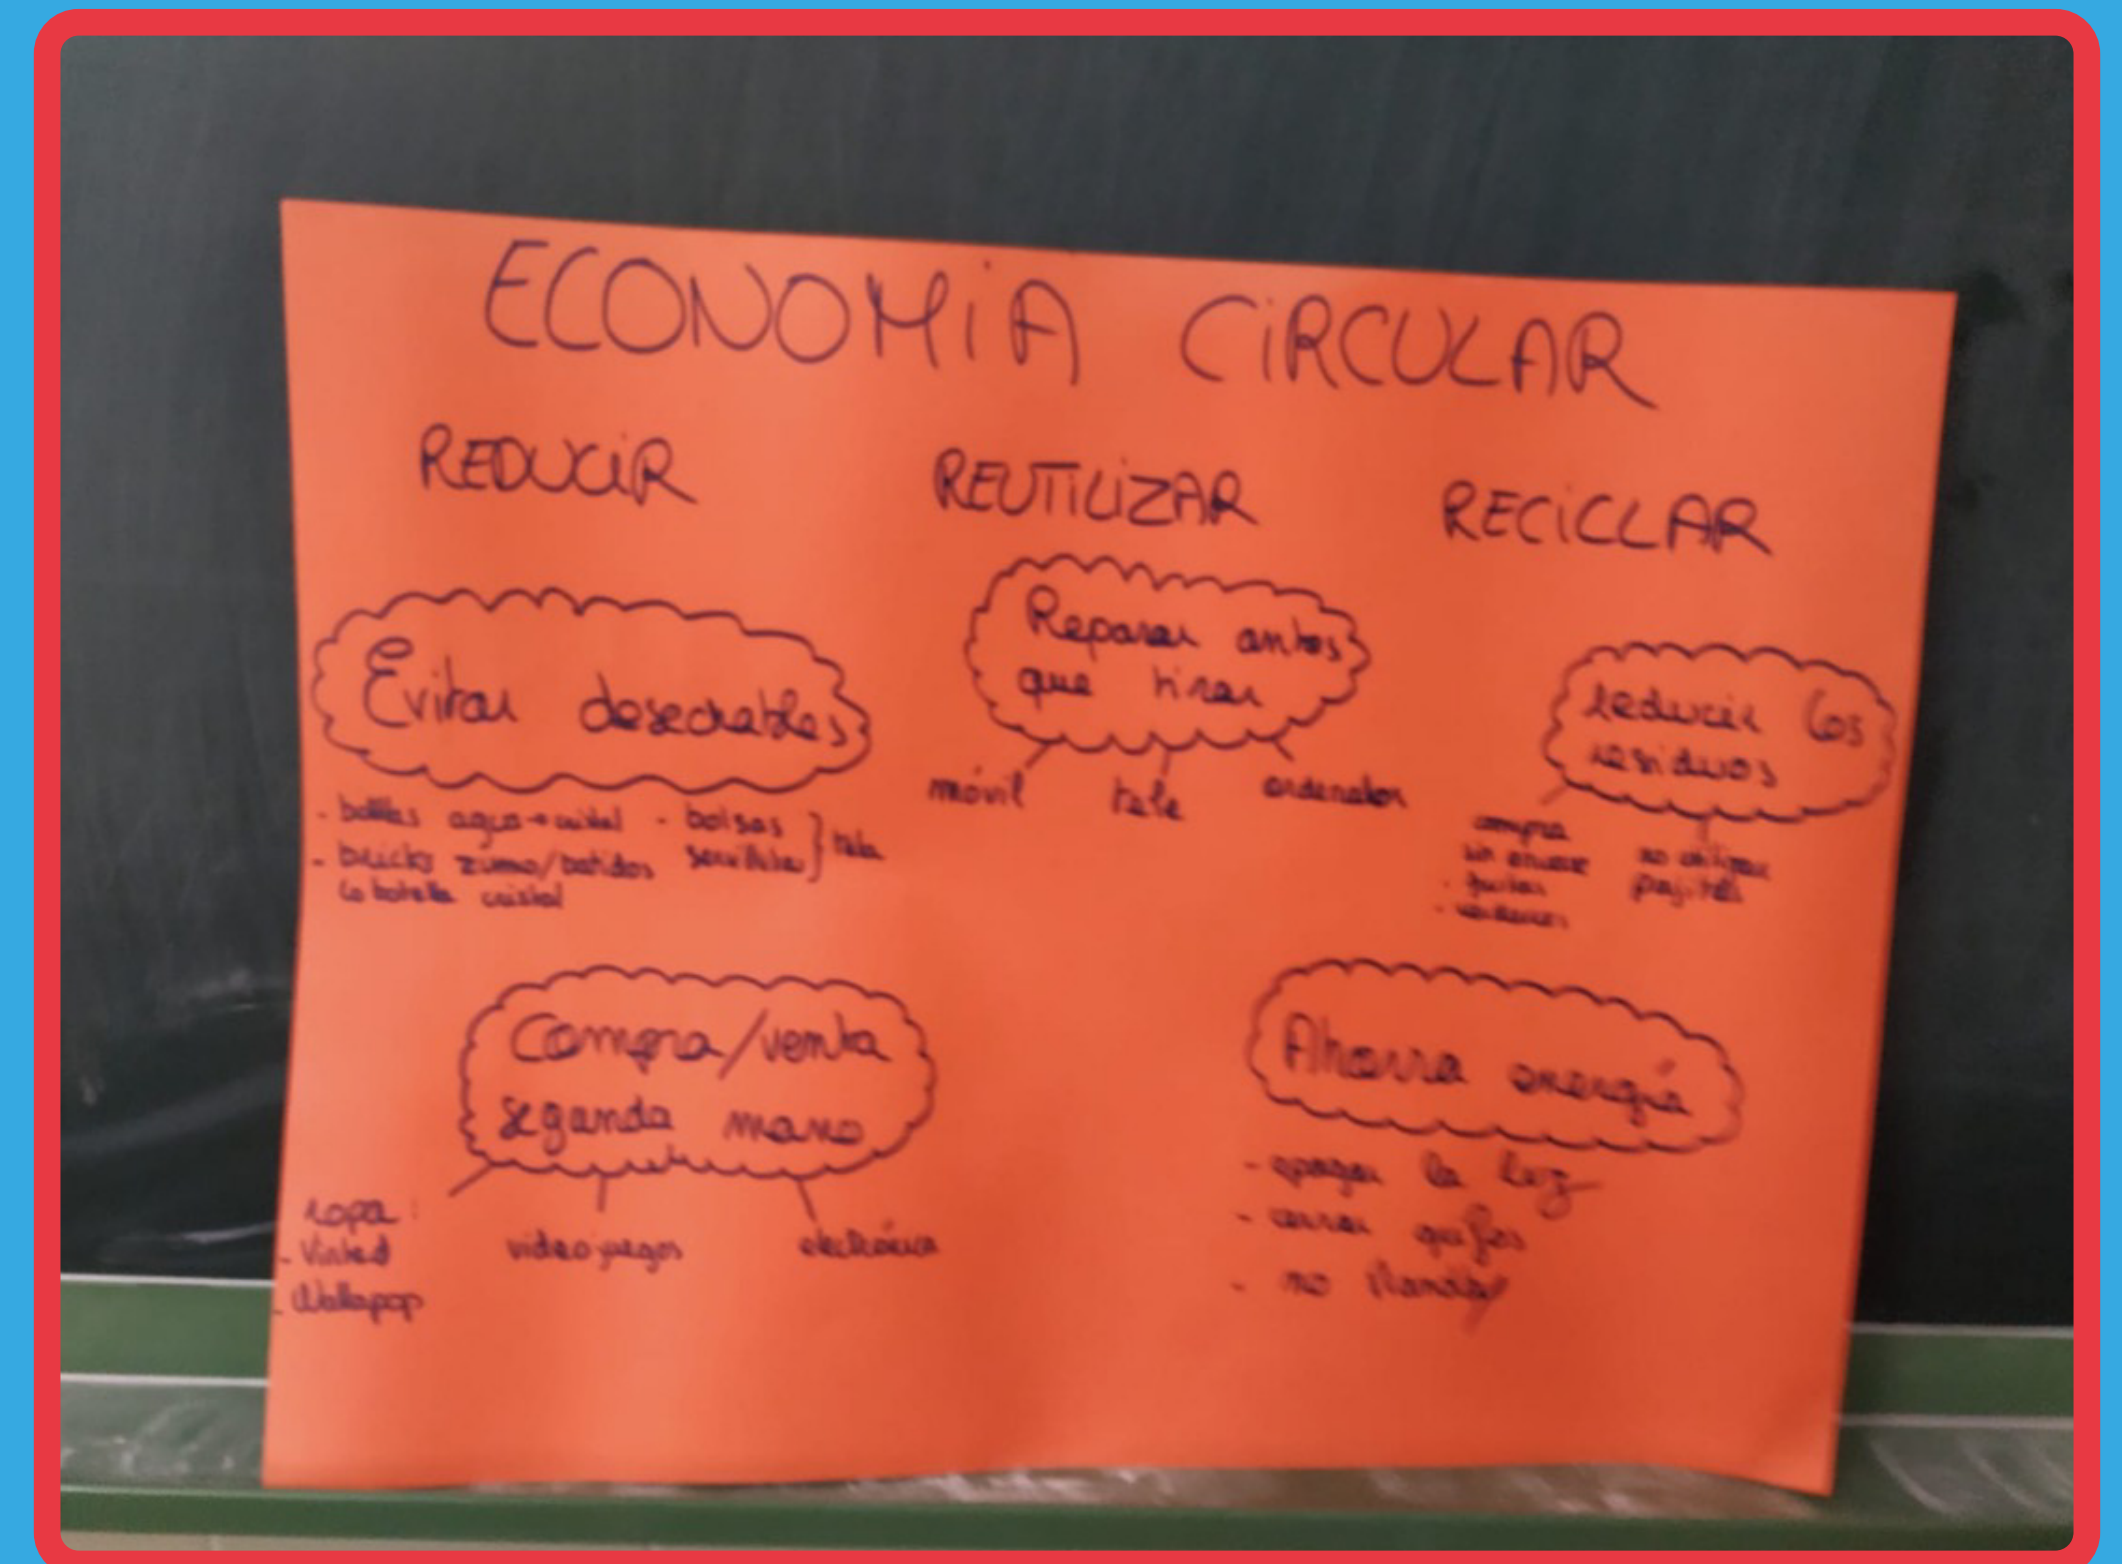 ECONOMIA CIRCULAR
REDUCIR
REUTILIZAR
RECICLAR
Evitar desechables
- botellas agua → cristal
- bricks zumo/batidos
↳ botella cristal
- bolsas
servilletas } tela
Reparar antes
que tirar
móvil
tele
ordenador
reducir los
residuos
compra
sin envase
- frutas
- verduras
no utilizar
pajitas
Compra/venta
segunda mano
ropa:
- Vinted
- Wallapop
videojuegos
electrónica
Ahorra energía
- apagar la luz
- cerrar grifos
- no